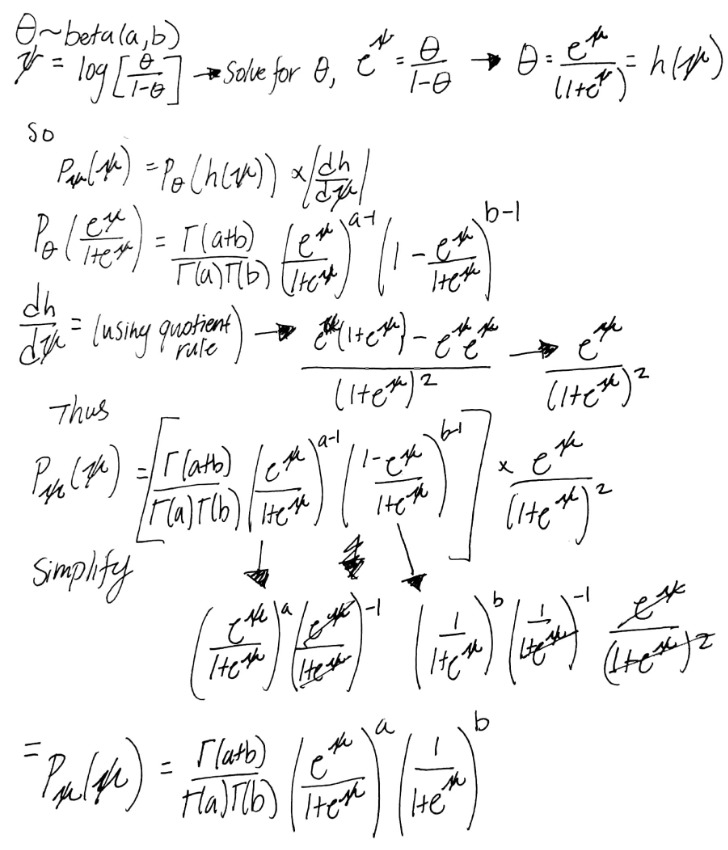 θ ~ beta(a,b)
ψ = log[θ/(1-θ)] → Solve for θ, e^ψ = θ/(1-θ) → θ = e^ψ/(1+e^ψ) = h(ψ)
so
P_ψ(ψ) = P_θ(h(ψ)) × |dh/dψ|
P_θ(e^ψ/(1+e^ψ)) = Γ(a+b)/(Γ(a)Γ(b)) (e^ψ/(1+e^ψ))^(a-1) (1 - e^ψ/(1+e^ψ))^(b-1)
dh/dψ = (using quotient rule) → (e^ψ(1+e^ψ) - e^ψ e^ψ)/(1+e^ψ)^2 → e^ψ/(1+e^ψ)^2
Thus
P_ψ(ψ) = [Γ(a+b)/(Γ(a)Γ(b)) (e^ψ/(1+e^ψ))^(a-1) ((1-e^ψ)/(1+e^ψ))^(b-1)] × e^ψ/(1+e^ψ)^2
Simplify
(e^ψ/(1+e^ψ))^a (e^ψ/(1+e^ψ))^-1 (1/(1+e^ψ))^b (1/(1+e^ψ))^-1 e^ψ/(1+e^ψ)^2
= P_ψ(ψ) = Γ(a+b)/(Γ(a)Γ(b)) (e^ψ/(1+e^ψ))^a (1/(1+e^ψ))^b